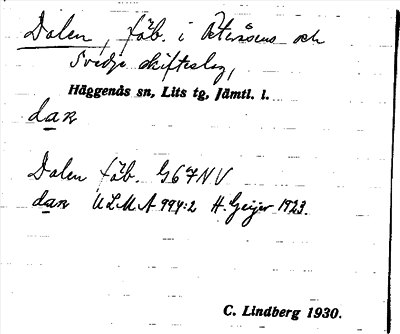 Dalen, fäb. i Peteråsens och
Svedje skifteslag,
Häggenås sn, Lits tg, Jämtl. l.
dan
Dalen fäb. G67NV
dan ULMA 994:2 H. Geijer 1923.
C. Lindberg 1930.